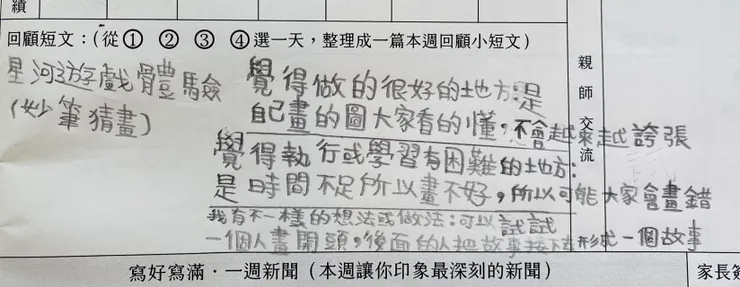 績
回顧短文：(從① ② ③ ④選一天，整理成一篇本週回顧小短文)
星河遊戲體驗
(妙筆猜畫)
覺得做的很好的地方:是
自己畫的圖大家看的懂，不會越來越誇張
覺得執行或學習有困難的地方:
是時間不足所以畫不好，所以可能大家會畫錯
我有不一樣的想法或做法:可以試試
一個人畫開頭，後面的人把故事接下去形成一個故事
親師交流
寫好寫滿．一週新聞（本週讓你印象最深刻的新聞）
家長簽